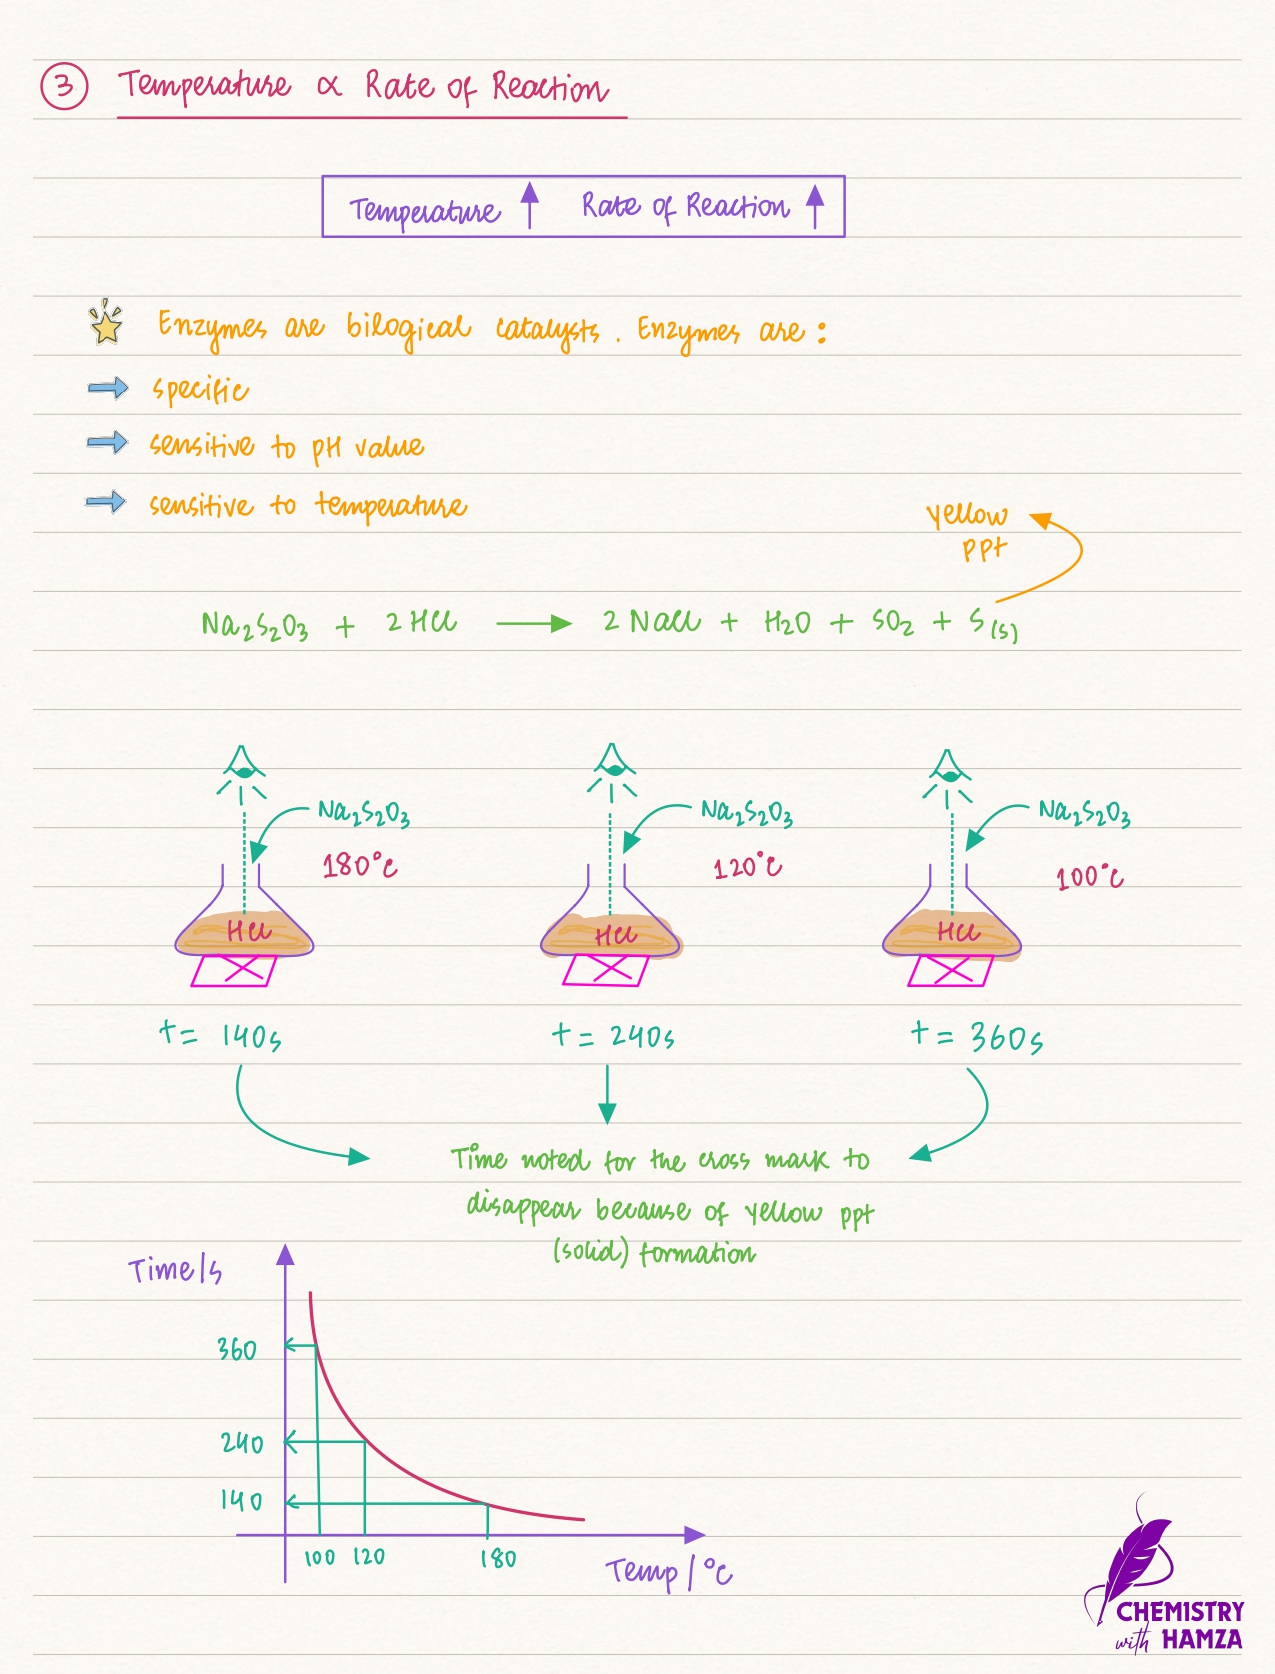 3 Temperature ∝ Rate of Reaction
Temperature ↑ Rate of Reaction ↑
Enzymes are bilogical catalysts. Enzymes are:
specific
sensitive to pH value
sensitive to temperature
yellow
ppt
Na₂S₂O₃ + 2HCl → 2NaCl + H₂O + SO₂ + S(s)
Na₂S₂O₃ Na₂S₂O₃ Na₂S₂O₃
180°C 120°C 100°C
HCl HCl HCl
t = 140s t = 240s t = 360s
Time noted for the cross mark to
disappear because of yellow ppt
(solid) formation
Time/s
360
240
140
100 120 180
Temp/°C
CHEMISTRY
with HAMZA